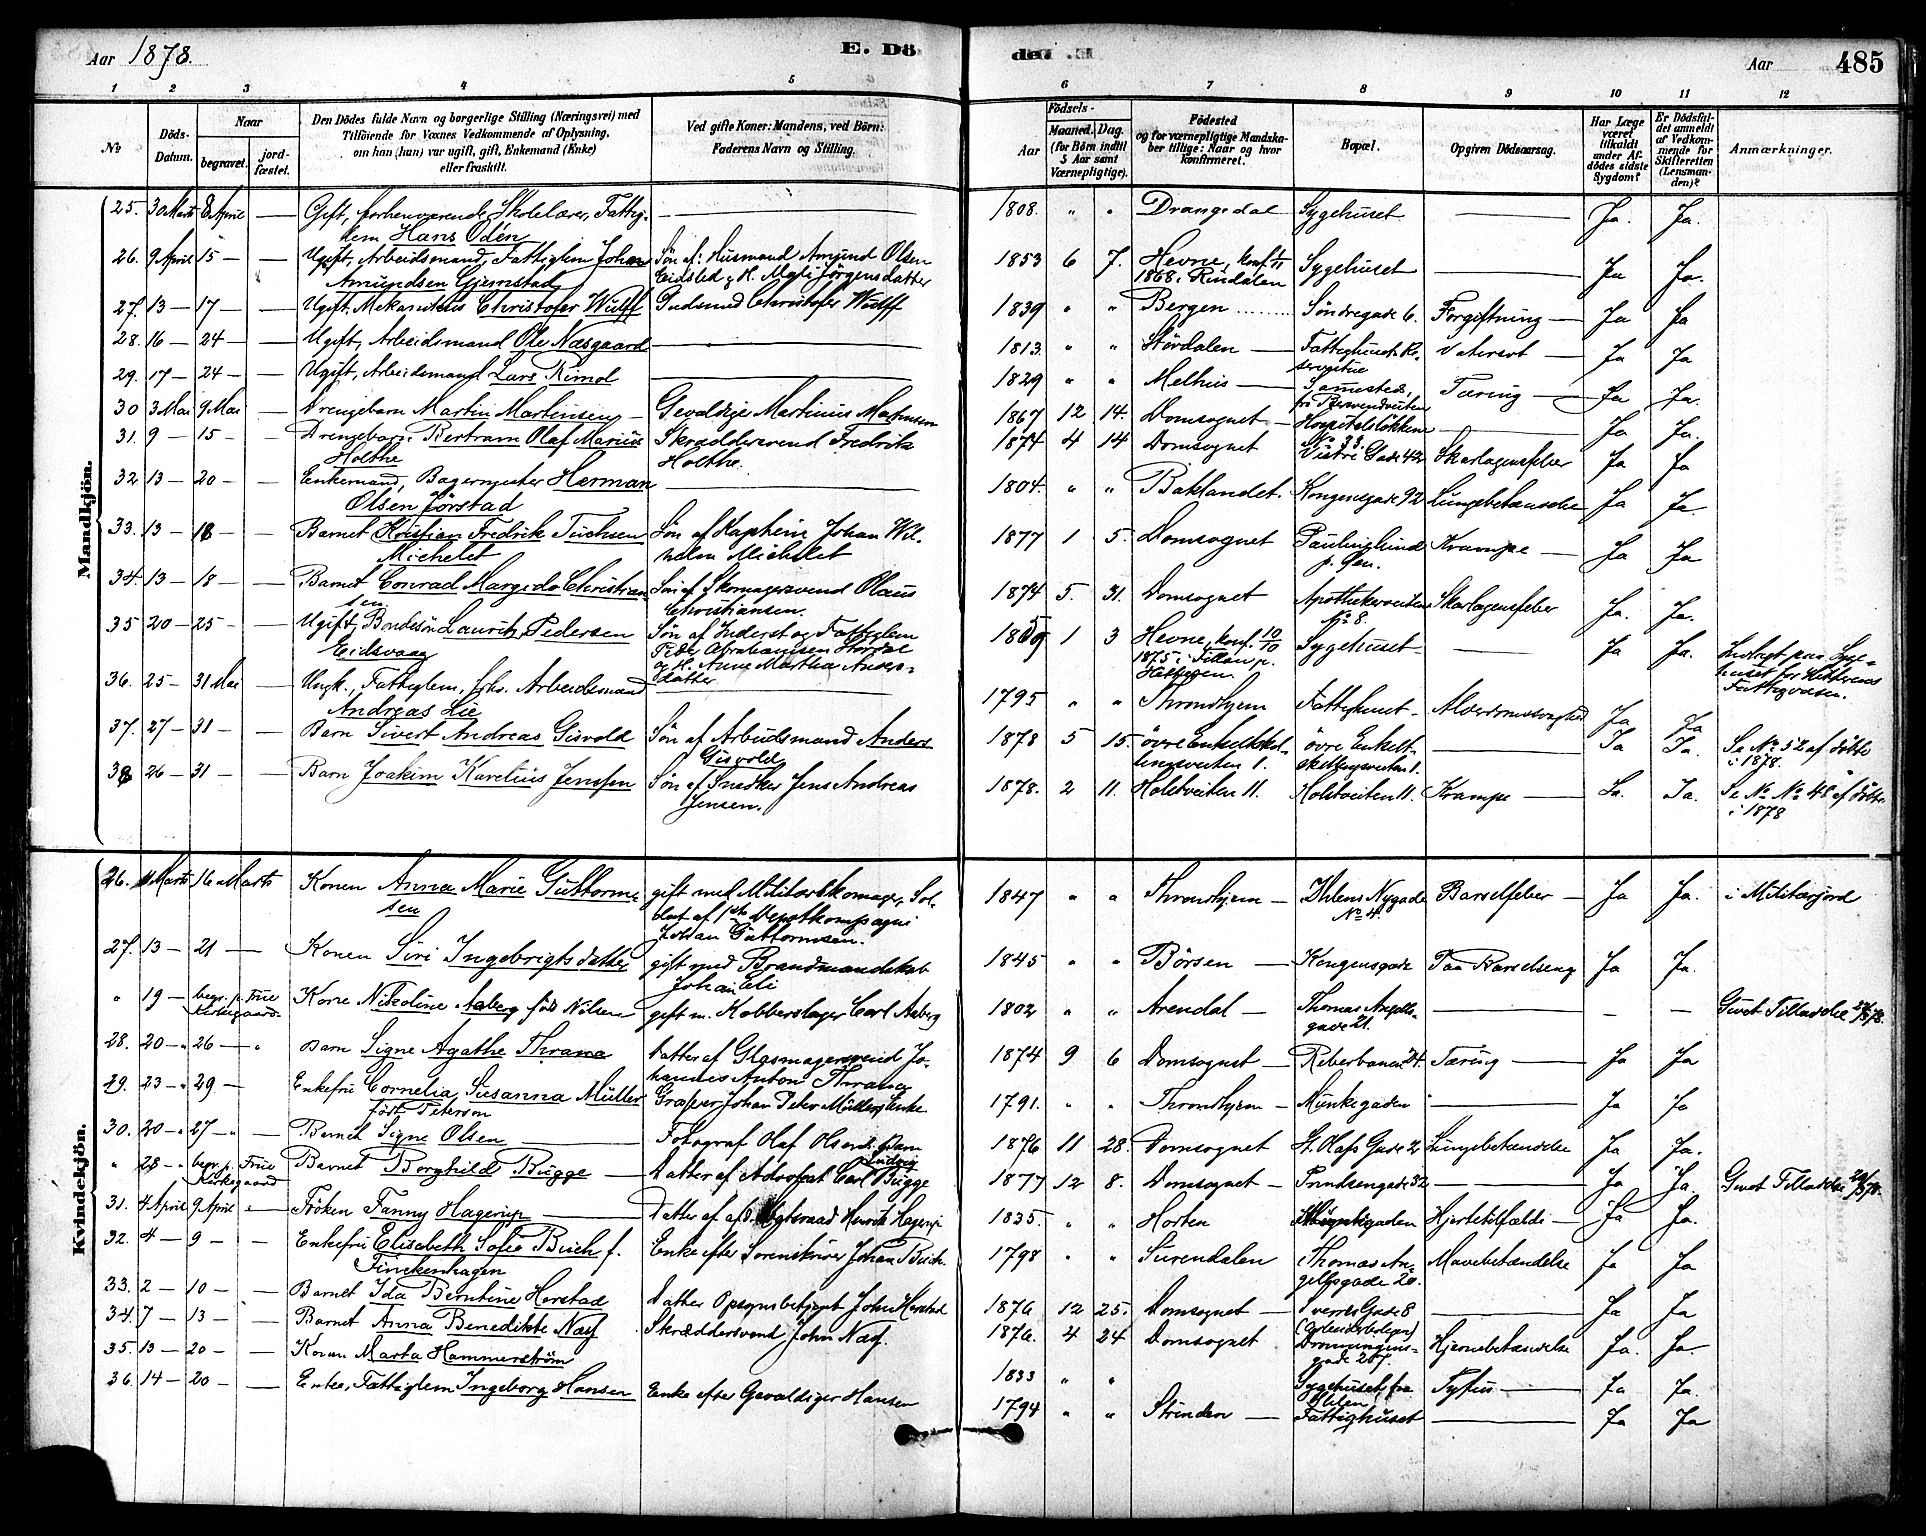 Aar 1878.
E. Dö
de E.
Aar 485
1 2 3 4 5 6 7 8 9 10 11 12
No
Döds-Datum.
Naar
begravet.
jord-fæstet.
Den Dödes fulde Navn og borgerlige Stilling (Næringsvei) med
Tilföiende for Voxnes Vedkommende af Oplysning,
om han (hun) var ugift, gift, Enkemand (Enke)
eller fraskilt.
Ved gifte Koner: Mandens, ved Börn:
Faderens Navn og Stilling.
Födsels-
Aar
Maaned. Dag.
(for Börn indtil
5 Aar samt
Værnepligtige).
Födested
og for værnepligtige Mandska-
ber tillige: Naar og hvor
konfirmeret.
Bopæl.
Opgiven Dödsaarsag.
Har Læge
været
tilkaldt
under Af-
dödes sidste
Sygdom?
Er Dödsfal-
det anmeldt
af Vedkom-
mende for
Skifteretten
(Lensman-
den)?
Anmærkninger.
Mandkjön.
25. 30 Marts 8 April — Gift, forhenværende Skolelærer, Fattig- — 1808. " " Drangedal Sygehuset — Ja. Ja.
lem Hans Odén
26. 9 April 15 — — Ugift, Arbeidsmand, Fattiglem Johan Søn af: Husmand Amund Olsen 1853 6 7. Hevne, konf. Sygehuset — Ja Ja.
Amundsen Gjemstad Eidsted & H. Jörgensdatter 1868 i Rindalen
27. 13 — 17 — — Ugift, Mekanikus Christofer Wulff Gudsmed Christofer Wulff 1839 " " Bergen Söndregade 6. Forgiftning — Ja Ja
28. 16 — 24 — — Ugift, Arbeidsmand Ole Næsgaard — 1813. " " Stördalen — Fattighuset Vatersot — Ja Ja
29. 17 — 24 — — Ugift, Arbeidsmand Lars Rimol — 1829 " " Melhus — Sammesteds, Tæring — Ja Ja.
30 3 Mai 9 Mai — Drengebarn Martin Martinsen — Gevaldiger Martinus Martinsen 1867 12 14. Domsognet — Hospitalslökken — Ja Ja.
No 33.
31. 9 — 15 — — Drengebarn Bertram Olaf Marius Skræddersvend Fredrik 1874 4 14 Domsognet Vestre Gade 42 Skarlagensfeber Ja Ja
Holthe Holthe.
32. 13 — 20 — — Enkemand, Bagermester Herman — 1804. " " Baklandet. Kongensgade 92 Lungebetændelse Ja Ja
Olsen Jörstad
33. 13 — 18 — — Barnet Kristian Fredrik Tuchsen Søn af Kapteine Johan Wil- 1877 1 5. Domsognet Krampe — Ja Ja
Michelet helm Michelet
34. 13 — 18 — — Barnet Conrad Margido Christian Søn af Skomagersvend Olaus 1874 5. 31. Domsognet Apothekerveiten Skarlagensfeber Ja. Ja.
sen Christiansen. No 8.
35 20 — 25 — — Ugift, Bondesön Laurits Pedersen Søn af Inderst og Fattiglem 1859 1 3 Hevne, konf. 10/10 Sygehuset — Ja Ja. Indlagt paa Syge-
Eidsvaag Peder Abrahamsen 1875 i huset for Hitterens
& H. Anne Martha Anders- Fattigvæsen.
datter
36. 25 — 31 Mai — Ungk., Fattiglem, fhv. Arbeidsmand — 1795 " " Throndhjem Fattighuset — Alderdomssvaghed Ja Ja
Andreas Lie
37. 27 — 31 — — Barn Sivert Andreas Gisvold Søn af Arbeidsmand Anders 1878 5 15. övre Enkeltskil- övre Enkelt- — Ja Ja. Se No 52 af födte
Gisvold lingsveiten 1. skillingsveiten 1. i 1878.
38 26 — 31 — — Barn Joakim Karelius Jenssen Søn af Snedker Jens Andreas 1878. 2 11. Holstveiten 11. Holstveiten 11. Krampe — Ja. Ja. Se No No 48 af födte
Jensen. i 1878
Kvindekjön.
26. Marts 16 Marts Konen Anna Marie Guttorm- gift med Militærskomager, Sol- 1847 " " Throndhjem — Ihlens Nygade Barselfeber — Ja Ja. i Militærjord
sen dat af 1ste Depotkompagni No 4.
Johan Guttormsen.
27. 13 — 21 — Konen Siri Ingebrigtsdatter gift med Brandmandskab 1845 " " Börsen — Kongensgade Paa Barselseng Ja Ja.
Johan Eli
" 19 — begr. p. Frue Kone Nikoline Aaberg föd Nilsen gift m. Kobberslager Carl Aaberg 1802 " " Arendal — Thomas Angells- — — Givet Tilladelse
Kirkegaard. gade 21.
28. 20 — 26 — Barn Signe Agathe Thrana Datter af Glasmagersvend Jo- 1874 9 6 Domsognet — Reberbanen 24. Tæring — Ja Ja
hannes Anton Thrana
29. 23 — 29 — Enkefru Cornelia Susanna Müller Johan Peter Müllers Enke 1791. " " Throndhjem — Munkegaden — Ja Ja
föd Peterson
30. 20 — 27 — Barnet Signe Olsen — Fotograf Olaf Olsens Barn 1876 11 28. Domsognet St. Olafs Gade 2 Lungebetændelse Ja Ja.
" 28 — begr. p. Frue Barnet Borghild Bugge — Datter af Advokat Carl Ludvig Bugge 1877 12 8. Domsognet — Prindsensgade 32 — Ja Ja. Givet Tilladelse
Kirkegaard
31. 4 April 9 April — Fröken Fanny Hagerup — Datter af afd. Henrik Hagerup 1835. " " Horten Munkegaden Hjertetilfælde — Ja Ja.
32. 4 — 9 — — Enkefru Elisabeth Sofie Brich f. Enke efter Sorenskriver Johan Brich. 1798 " " Surendalen (Thomas An- Mavebetændelse Ja Ja
Finckenhagen gellsgade 20.
33. 2 — 10 — — Barnet Ida Berntine Herstad Datter Opsynsbetjent John Herstad 1876 12 25. Domsognet — Sverres Gade 8 — Ja Ja
34. 7 — 13 — — Barnet Anna Benedikte Næss Skræddersvend John Næss. 1876. 4 24 Domsognet (Arbeiderboliger) Hjernebetændelse Ja. Ja.
Dronningens-
gade
35. 13 — 20 — — Konen Marta Hammerström 1833 " " Sygehuset, fra Tyfus — Ja Ja.
Ihlen
36. 14 — 20 — — Enke, Fattiglem Ingeborg Hansen Enke efter Gevaldiger Hansen 1794 " " Strinden — Fattighuset — Ja Ja